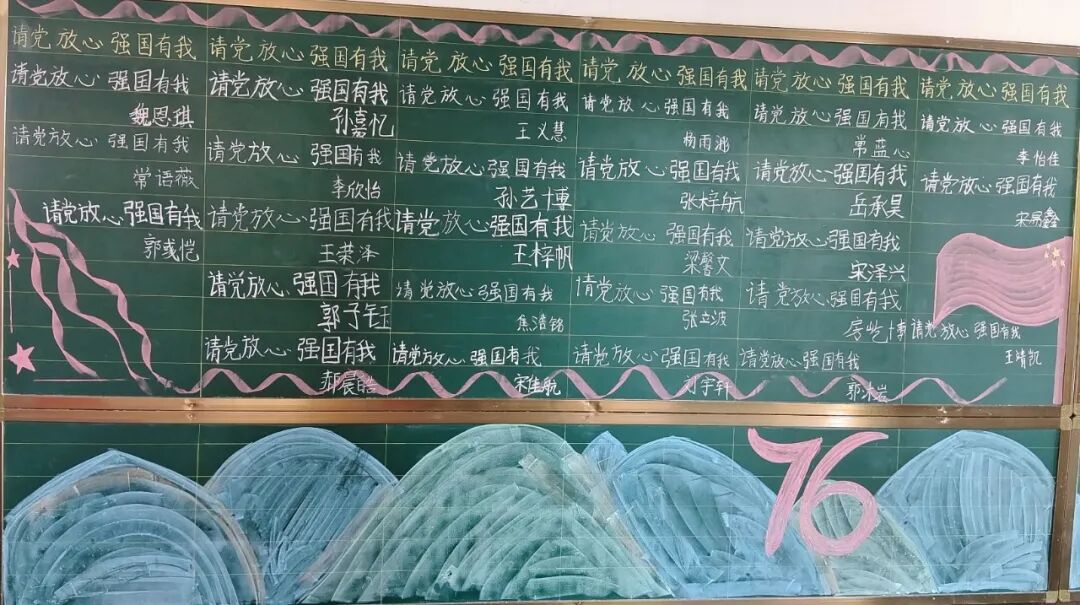 请党放心强国有我
请党放心强国有我
魏恩琪
请党放心强国有我
常语薇
请党放心强国有我
郭彧恺
请党放心强国有我
请党放心强国有我
孙嘉忆
请党放心强国有我
李欣怡
请党放心强国有我
王荣泽
请党放心强国有我
郭子钰
请党放心强国有我
郝晨皓
请党放心强国有我
请党放心强国有我
王义慧
请党放心强国有我
孙艺博
请党放心强国有我
王梓帆
请党放心强国有我
焦浩铭
请党放心强国有我
宋佳航
请党放心强国有我
请党放心强国有我
杨雨
请党放心强国有我
张梓航
请党放心强国有我
梁馨文
请党放心强国有我
张立波
请党放心强国有我
刘宇轩
请党放心强国有我
请党放心强国有我
常蓝心
请党放心强国有我
岳承昊
请党放心强国有我
宋泽兴
请党放心强国有我
房屹博
请党放心强国有我
郭沐岩
请党放心强国有我
请党放心强国有我
李怡佳
请党放心强国有我
宋易鑫
请党放心强国有我
王靖凯
76